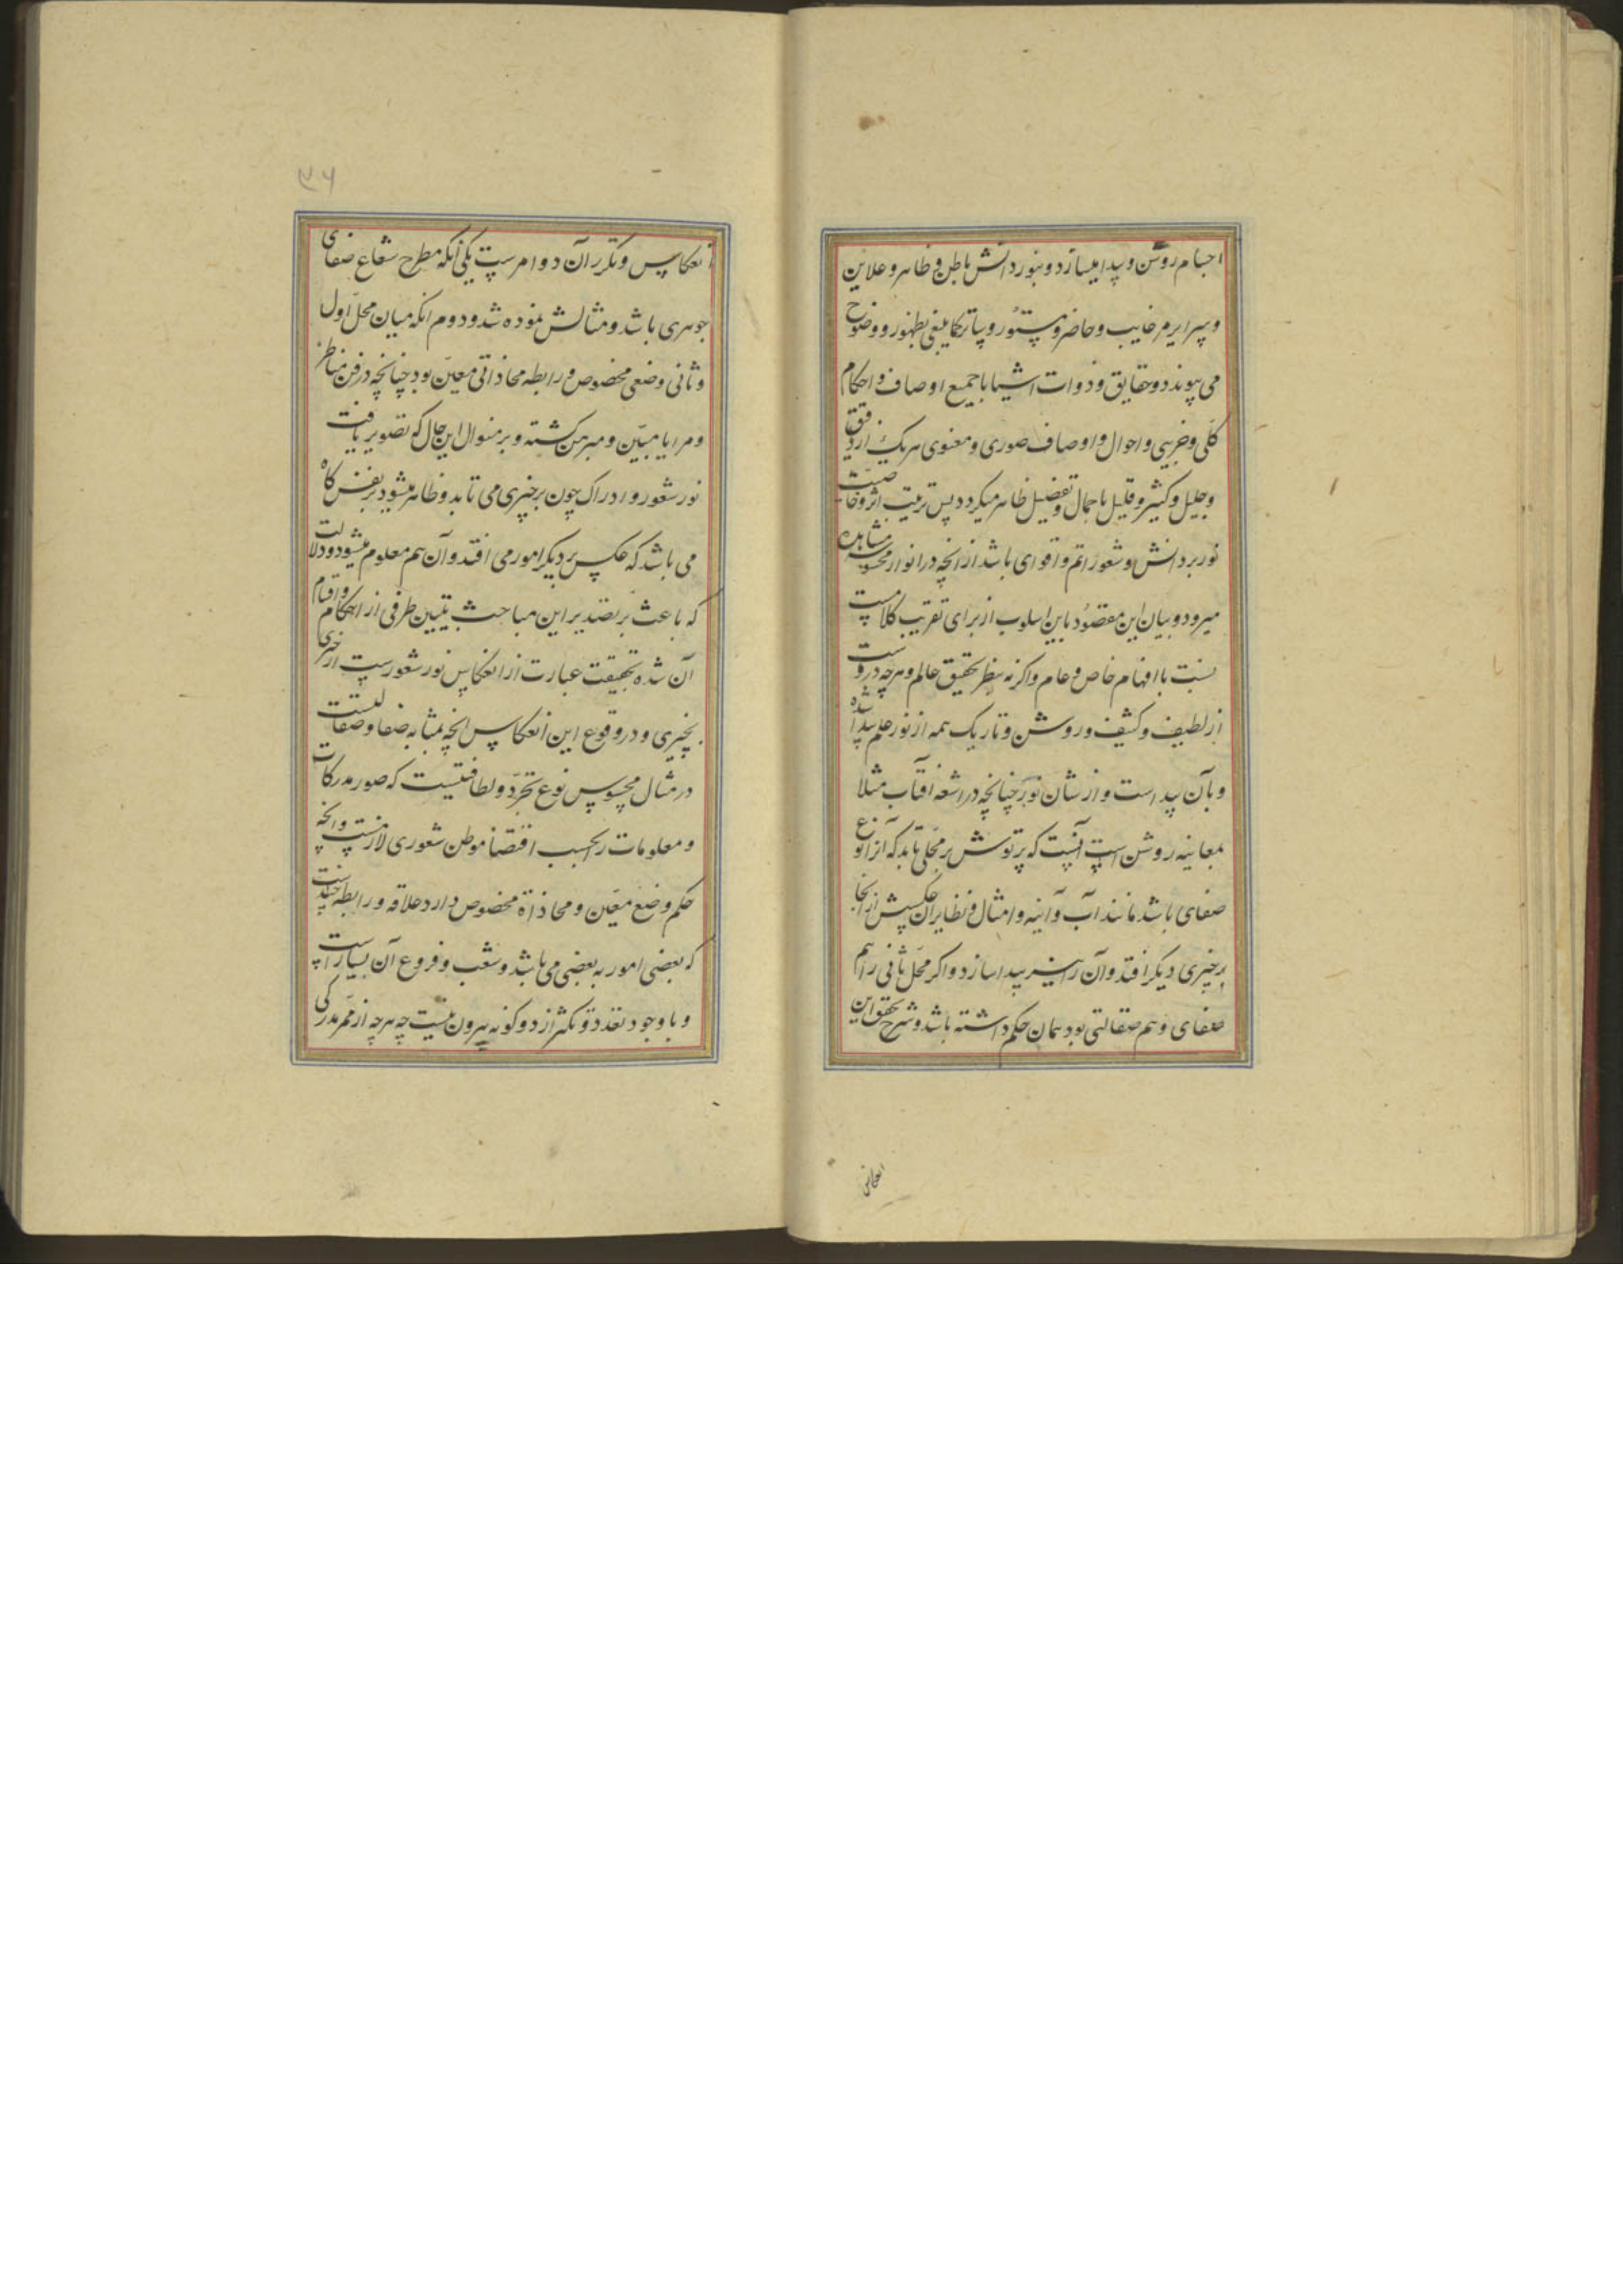 اجسام روشن و پیدا میسازد و بنور دانش باطن و ظاهر و علاین
و سرایر غایب و حاضر و مستور و سایر کماینبغی بظهور و وضوح
می پیوندد و حقایق و ذوات اشیا با جمیع اوصاف و احکام
کلّی و جزیی و احوال و اوصاف صوری و معنوی هر یک از دقیق
و جلیل و کثیر و قلیل باجمال و تفصیل ظاهر میکردد پس ترتیب اثر و خاصیت
نور بر دانش و شعور اتم و اقوای باشد از انچه در انوار محسوسه مشاهده
میرود و بیان این مقصود باین اسلوب از برای تقریب کلامست
بنسبت با افهام خاص و عام و اکرنه بنظر تحقیق عالم و هرچه دروست
از لطیف و کثیف و روشن و تاریک همه از نور علم پیدا شده
و بآن پیداست و از شان نور چنانچه در اشعه آفتاب مثلا
بمعاینه روشن است آنست که پرتوش بر محلّی تابد که آنرا نوع
صفای باشد مانند آب و آینه و امثال و نظایر ان عکسش از انجا
بر چیزی دیکر افتد و آن را نیز پیدا سازد و اکر محلّ ثانی را هم
صفای و هم صقالتی بود همان حکم داشته باشد و شرح تحقق این
انعکاس
۳۶
انعکاس و تکرر آن دو امرست یکی آنکه مطرح شعاع صفای
جوهری باشد و مثالش نموده شد و دوم انکه میان محلّ اول
و ثانی وضعی مخصوص و رابطه محاذاتی معیّن بود چنانچه در فن مناظر
و مرایا مبیّن و مبرهن کشته و بر منوال این حال که تصویر یافت
نور شعور و ادراک چون بر چیزی می تابد و ظاهر میشود بر نفس کاه
می باشد که عکس بر دیکر امور می افتد و آن هم معلوم میشود و دلالت
که باعث بر تصدیر این مباحث تبیین طرفی از احکام و اقسام
آن شده بحقیقت عبارت از انعکاس نور شعورست از چیزی
بچیزی و در وقوع این انعکاس انچه بمثابه صفا و صقالتست
در مثال محسوس نوع تجرّد و لطافتیست که صور مدرکات
و معلومات را بحسب اقتضا موطن شعوری لازمست و انچه
حکم وضع معیّن و محاذاة مخصوص دارد علاقه و رابطه چندست
که بعضی امور به بعضی می باشد و شعب و فروع آن بسیارست
و با وجود تعدد و تکثر از دو کونه بیرون نیست چه هرچه از ممر مدرکی